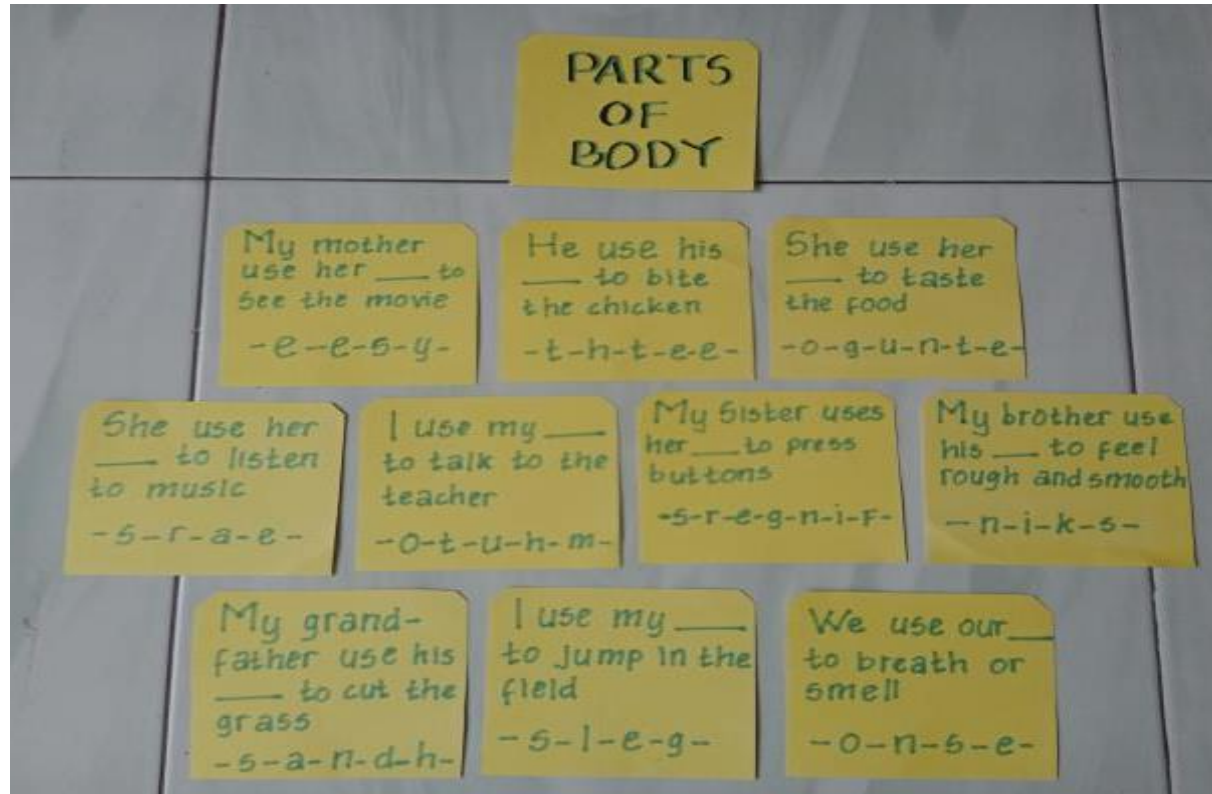 PARTS
OF
BODY
My mother
use her ___ to
see the movie
-e-e-s-y-
He use his
___ to bite
the chicken
-t-h-t-e-e-
She use her
___ to taste
the food
-o-g-u-n-t-e-
She use her
___ to listen
to music
-s-r-a-e-
I use my ___
to talk to the
teacher
-o-t-u-h-m-
My Sister uses
her ___ to press
buttons
-s-r-e-g-n-i-F-
My brother use
his ___ to feel
rough and smooth
-n-i-k-s-
My grand-
father use his
___ to cut the
grass
-s-a-n-d-h-
I use my ___
to jump in the
field
-s-l-e-g-
We use our ___
to breath or
smell
-o-n-s-e-